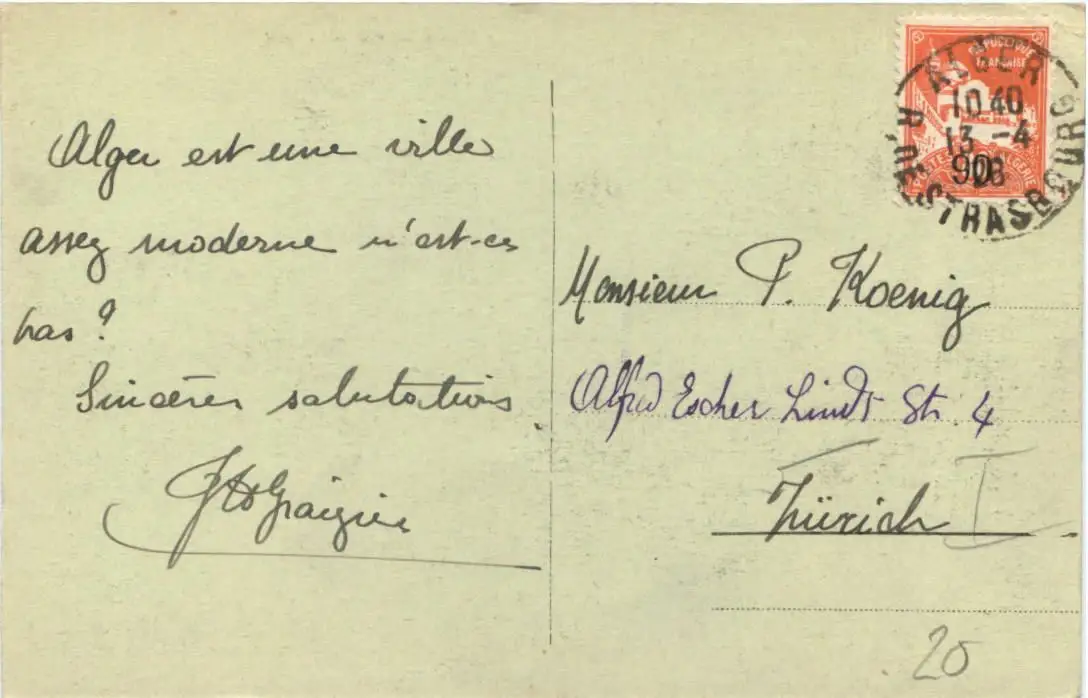 Alger est une ville
assez moderne n'est-ce
pas ?
Sincères salutations
RÉPUBLIQUE
FRANÇAISE
POSTES ALGÉRIE
90
ALGER
10 40
13 -4
28
R. DE STRASBOURG
Monsieur P. Koenig
Alfred Escher Str. 4
Zürich I
20